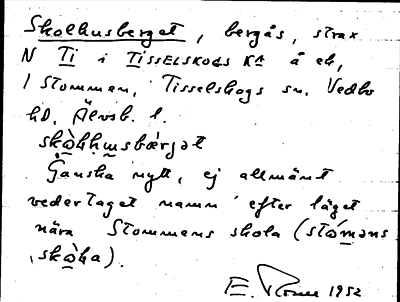 Skolhusberget, bergås, strax
N Ti i TISSELSKOGS KA å ek,
1 Stommen, Tisselskogs sn. Vedbo
hd. Älvsb. l.
skɷ̀hhusbærjət
Ganska nytt, ej allmänt
vedertaget namn efter läget
nära Stommens skola (stóməns
skɷ̀ha).
E. 1952